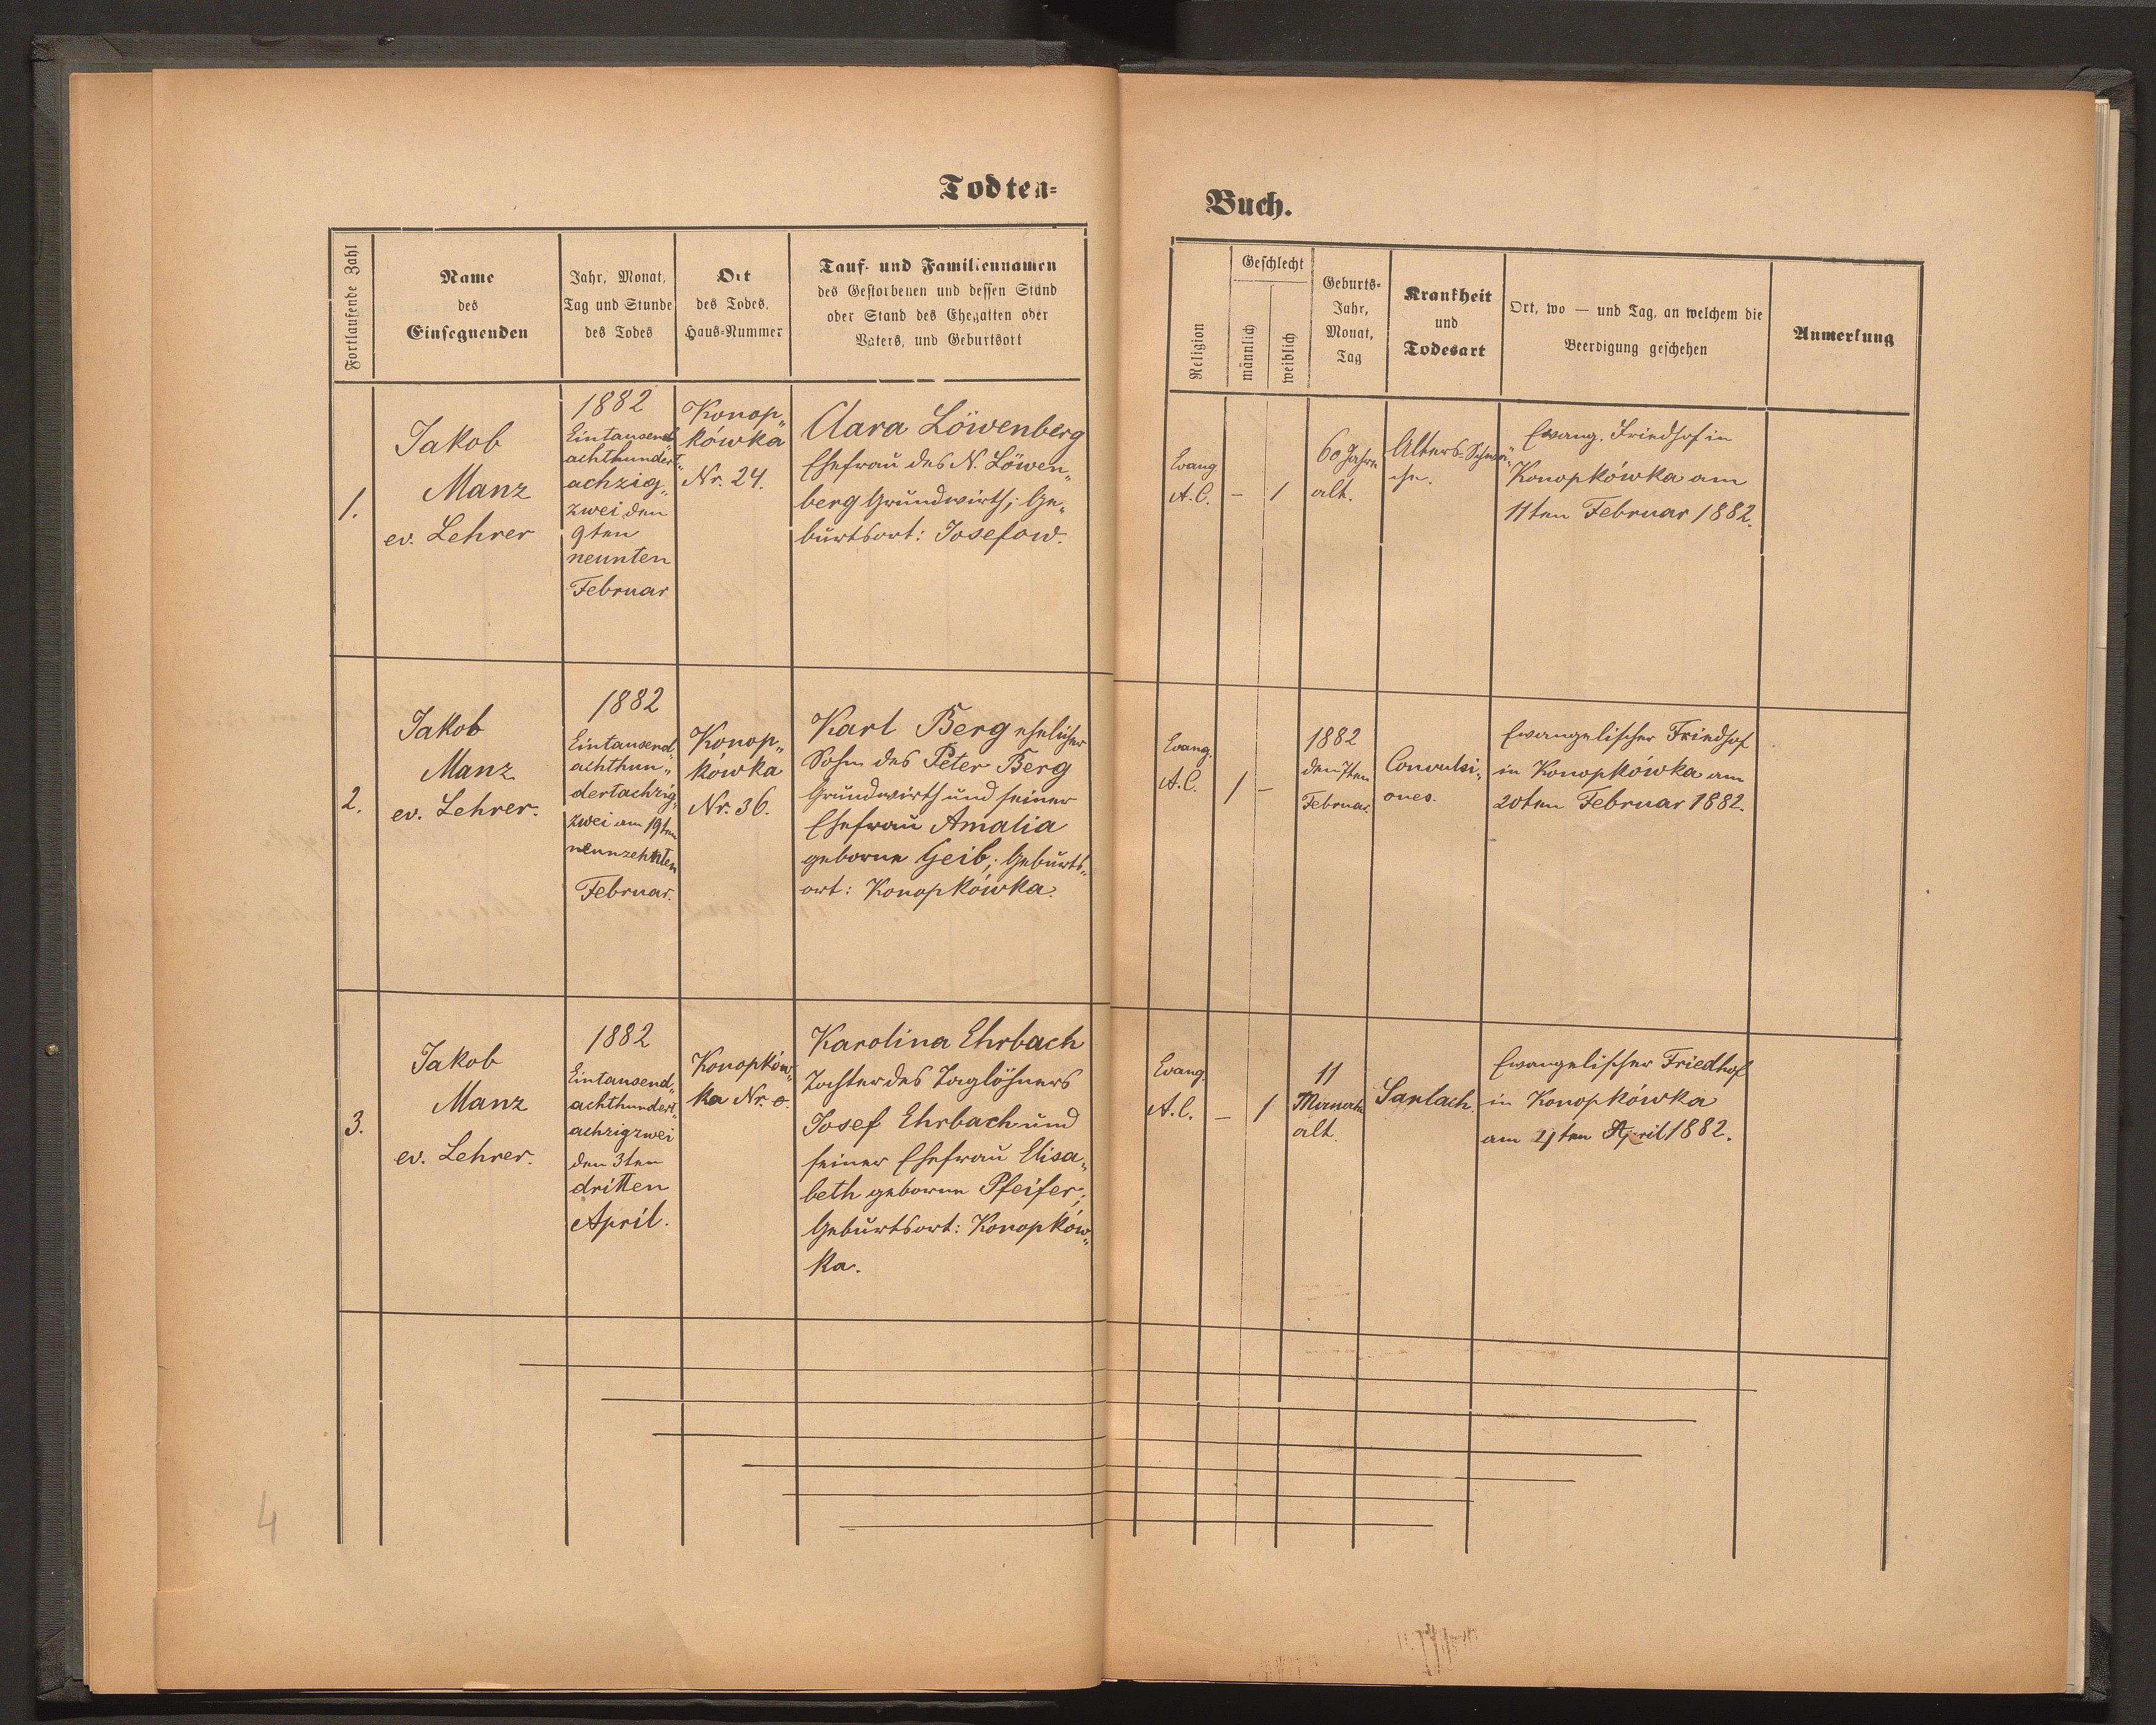 Todten-
Buch.
Fortlaufende Zahl
Name
des
Einsegnenden
Jahr, Monat,
Tag und Stunde
des Todes
Ort
des Todes,
Haus-Nummer
Tauf- und Familiennamen
des Gestorbenen und dessen Stand
oder Stand des Ehegatten oder
Vaters, und Geburtsort
Religion
Geschlecht
männlich
weiblich
Geburts-
Jahr,
Monat,
Tag
Krankheit
und
Todesart
Ort, wo — und Tag, an welchem die
Beerdigung geschehen
Anmerkung
1.
Jakob
Manz
ev. Lehrer
1882
Eintausend
achthundert„
achzig„
zwei den
9ten
neunten
Februar
Konop„
kówka
Nr. 24.
Clara Löwenberg
Ehefrau des N. Löwen„
berg Grundwirth; Ge„
burtsort: Josefow.
Evang.
A.C.
–
1
60 Jahre
alt.
Alters-Schwä„
che.
Evang. Friedhof in
Konopkówka am
11ten Februar 1882.
2.
Jakob
Manz
ev. Lehrer.
1882
Eintausend„
achthun„
dertachzig„
zwei am 19ten
neunzehnten
Februar.
Konop„
kówka
Nr. 36.
Karl Berg ehelicher
Sohn des Peter Berg
Grundwirth und seiner
Ehefrau Amalia
geborne Geib; Geburts„
ort: Konopkówka.
Evang.
A.C.
1
–
1882
den 7ten
Februar.
Convulsi„
ones.
Evangelischer Friedhof
in Konopkówka am
20ten Februar 1882.
3.
Jakob
Manz
ev. Lehrer.
1882
Eintausend„
achthundert„
achzigzwei
den 3ten
dritten
April.
Konopków„
ka Nr. o.
Karolina Ehrbach
Tochter des Taglöhners
Josef Ehrbach und
seiner Ehefrau Elisa„
beth geborne Pfeifer;
Geburtsort: Konopków„
ka.
Evang.
A.C.
–
1
11
Monate
alt.
Sarlach.
Evangelischer Friedhof
in Konopkówka
am April 1882.
4